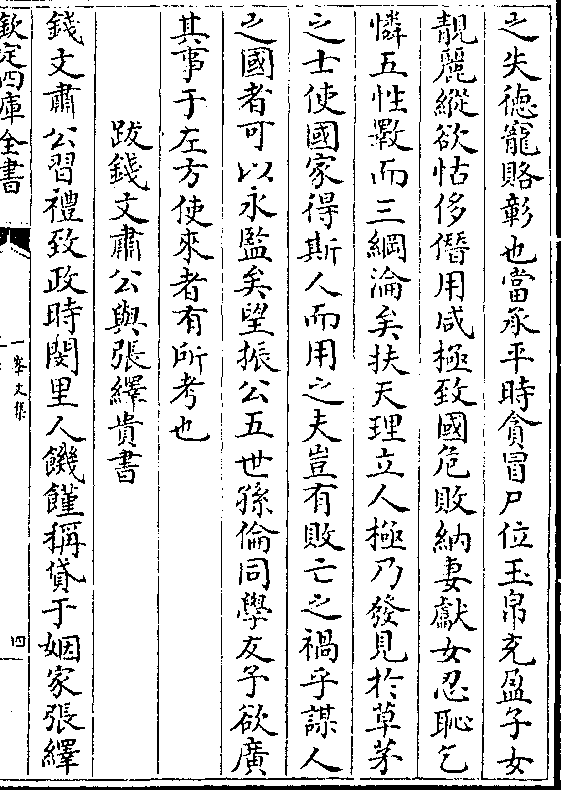 之失徳寵賂彰也當承平時貪冒尸位玉帛充盈子女
靚麗縱欲怙侈僭用咸極致國危敗納妻獻女忍恥乞
憐五性斁而三綱淪矣扶天理立人極乃發見於草茅
之士使國家得斯人而用之夫豈有敗亡之禍乎謀人
之國者可以永監矣望振公五世孫倫同學友予欲廣
其事于左方使來者有所考也
跋錢文肅公與張繹貴書
錢文肅公習禮致政時閔里人饑饉稱貸于姻家張繹
欽定四庫全書
一峯文集
四